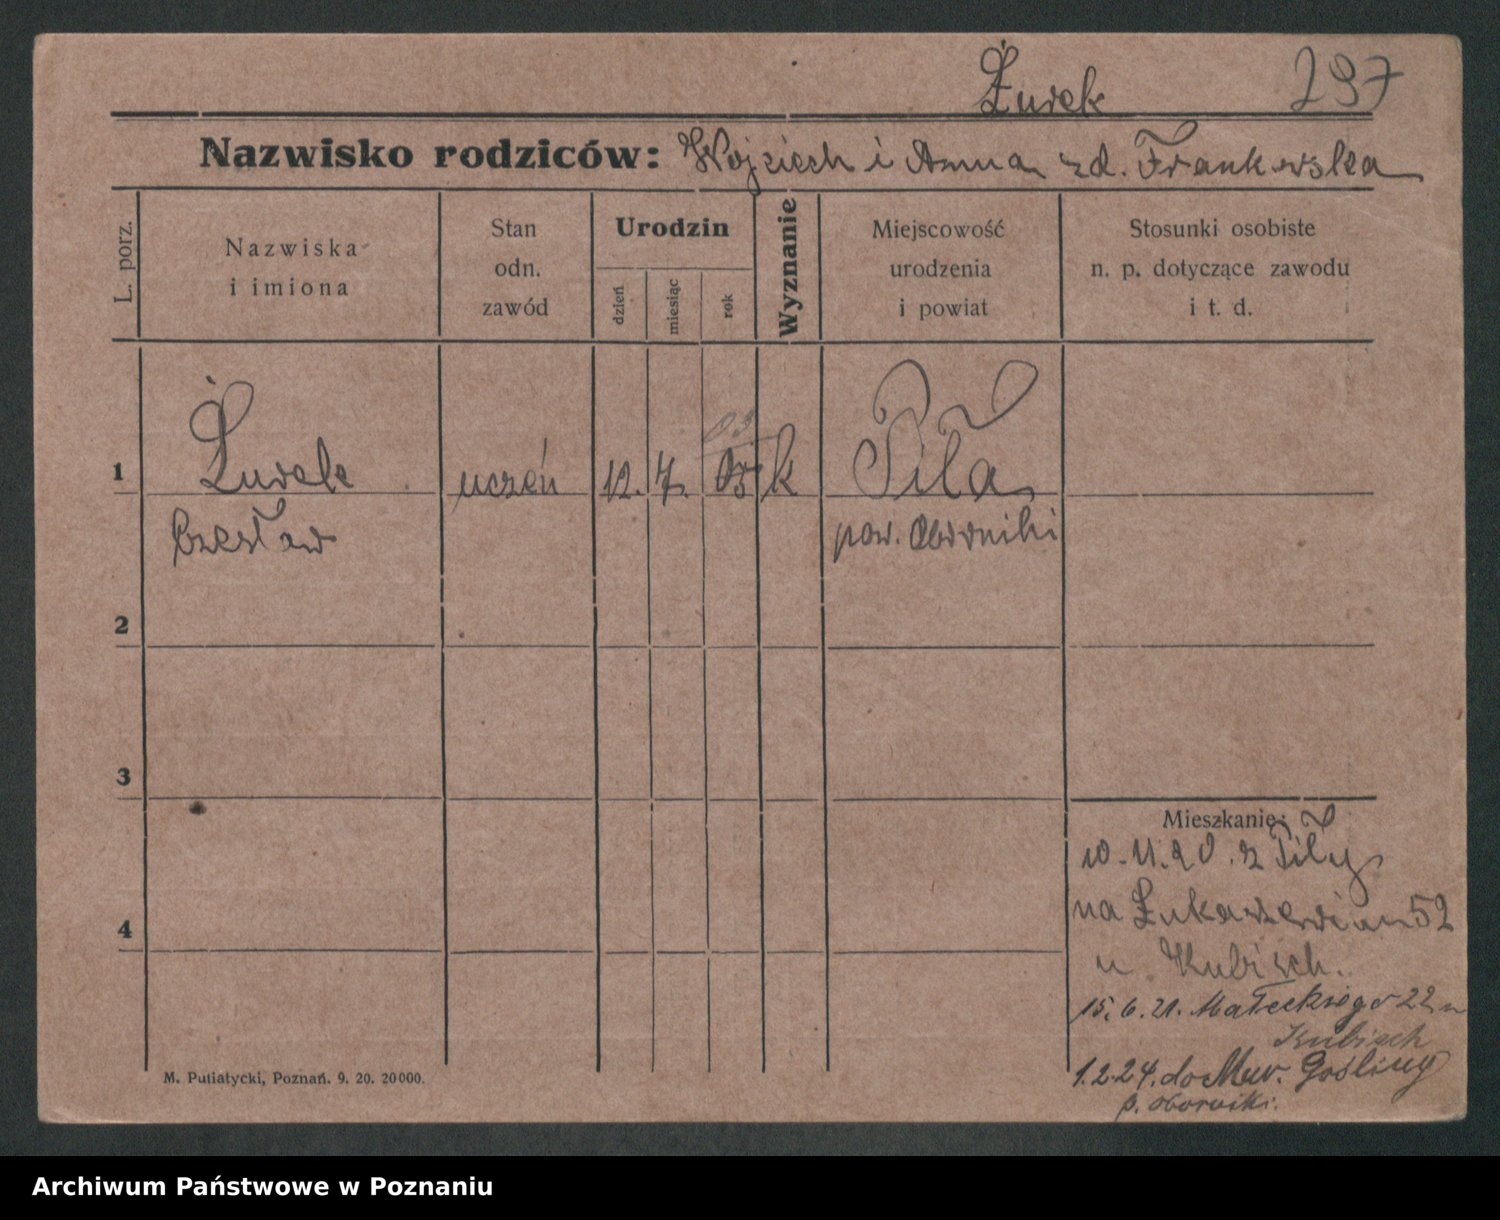 Żurek 297
Nazwisko rodziców: Wojciech i Anna zd. Frankowska
L. porz.
Nazwiska
i imiona
Stan
odn.
zawód
Urodzin
dzień
miesiąc
rok
Wyznanie
Miejscowość
urodzenia
i powiat
Stosunki osobiste
n. p. dotyczące zawodu
i t. d.
03
1 Żurek uczeń 12. 7. 05 k Piła
Czesław pow. Oborniki
2
3
Mieszkanie:
10.11.20. z Piły
na Łukaszewicza 52
u Kubisch.
4
15.6.21. Małeckiego 22 u
Kubisch
1.2.24. do Mur. Gośliny
p. Oborniki.
M. Putiatycki, Poznań. 9. 20. 20000.
Archiwum Państwowe w Poznaniu